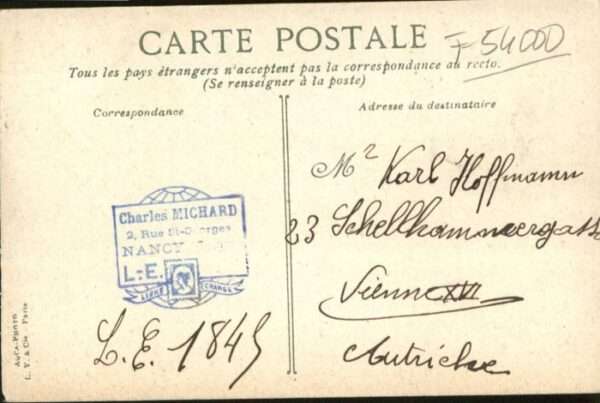 CARTE POSTALE
F 54000
Tous les pays étrangers n'acceptent pas la correspondance au recto.
(Se renseigner à la poste)
Correspondance
Adresse du destinataire
Mr Karl Hoffmann
23 Schellhammergasse
Vienne XVI
Autriche
Charles MICHARD
2, Rue St-Georges
NANCY
L.-E.
LIBRE CHANGE
L. E. 1845
AQUA-PHOTO
L. V. & Cie Paris